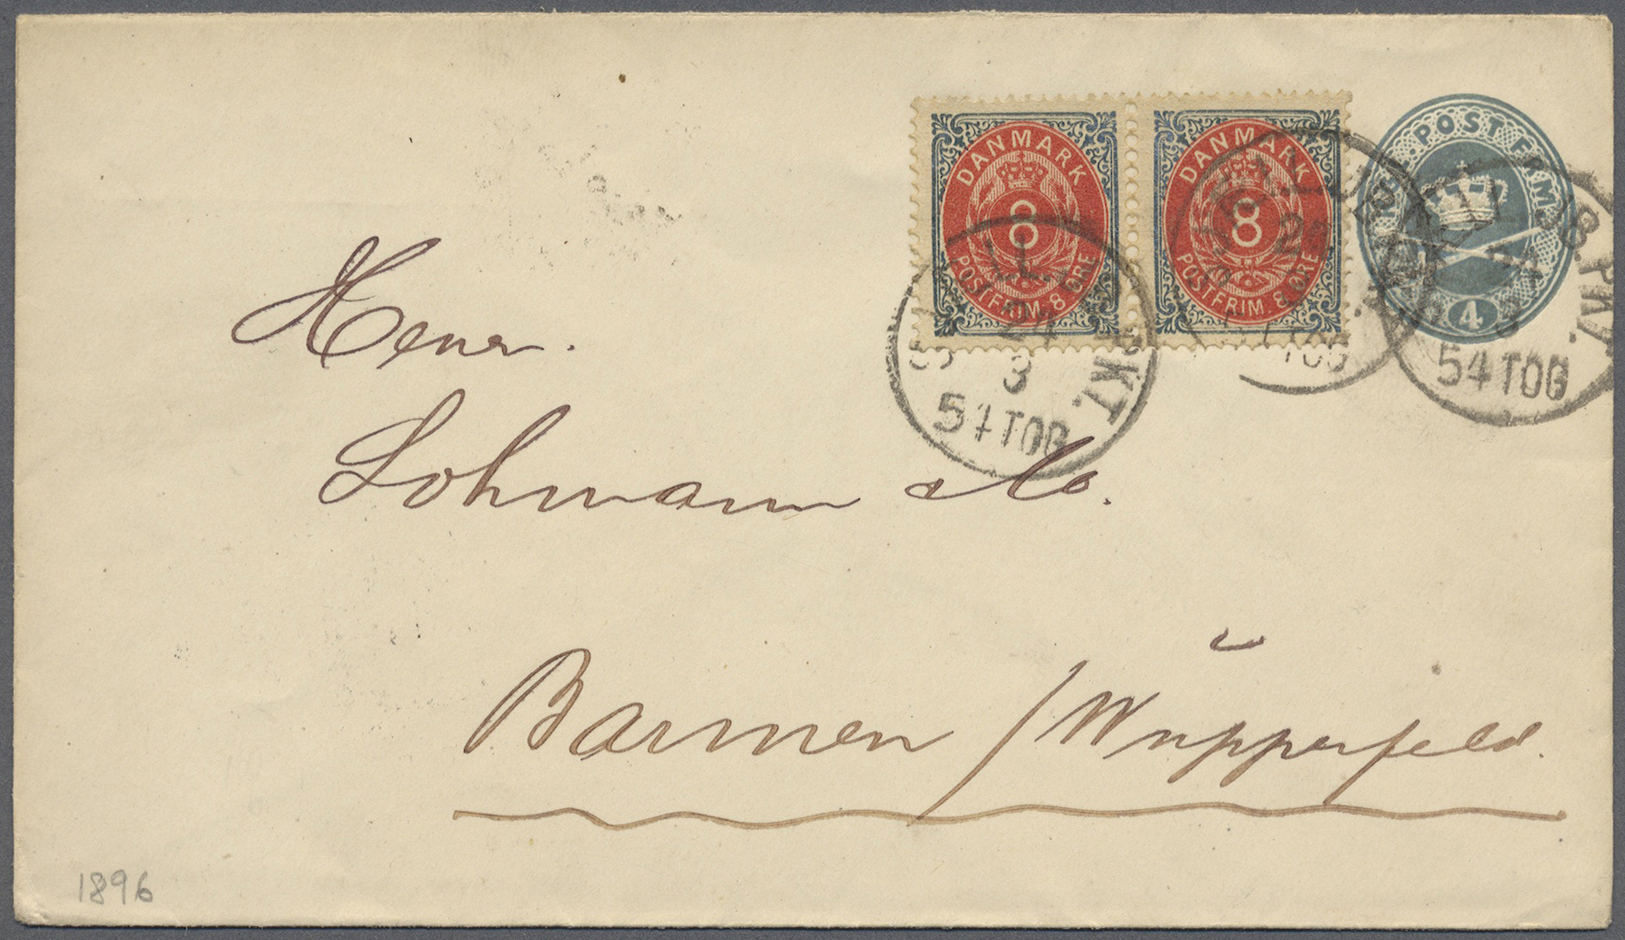 DANMARK
8
POSTFRIM. 8 ØRE
DANMARK
8
POSTFRIM. 8 ØRE
POST FRM
4
24
3
54 TOG
PKT.
54 TOG
PKT.
Herrn.
Lohmann & Co.
Barmen / Wupperfeld.
1896